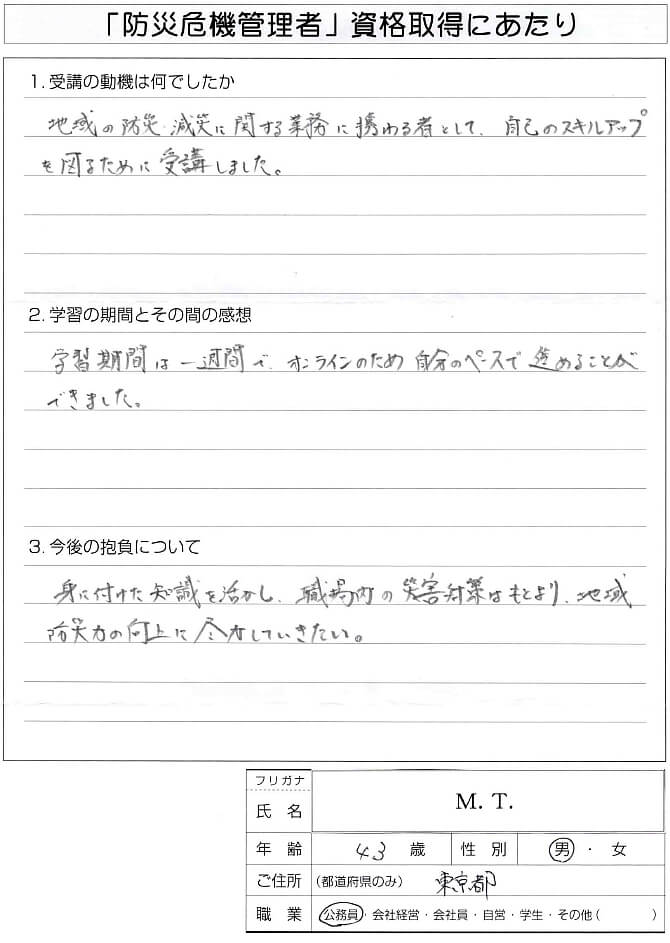 「防災危機管理者」資格取得にあたり
1. 受講の動機は何でしたか
地域の防災・減災に関する業務に携わる者として、自己のスキルアップ
を図るために受講しました。
2. 学習の期間とその間の感想
学習期間は一週間で、オンラインのため自分のペースで進めることが
できました。
3. 今後の抱負について
身に付けた知識を活かし、職場内の災害対策はもとより、地域
防災力の向上に尽力していきたい。
フリガナ
氏名 M. T.
年齢 43 歳 性別 男・女
ご住所 (都道府県のみ) 東京都
職業 公務員・会社経営・会社員・自営・学生・その他( )